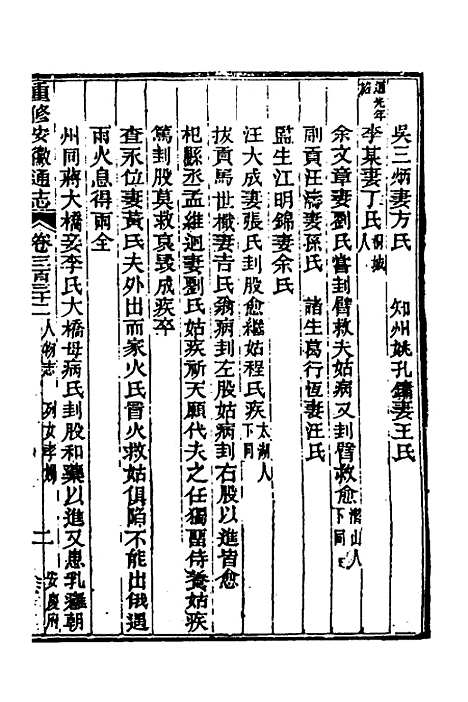 吳三炳妻方氏　知州姚孔鏞妻王氏
道光年
李某妻丁氏 桐城人
余文章妻劉氏嘗刲臂救夫姑病又刲臂救愈 潛山人下同
副貢汪濤妻孫氏　諸生葛行恆妻汪氏
監生江明錦妻余氏
汪大成妻張氏刲股愈繼姑程氏疾 太湖人下同
拔貢馬世櫼妻吉氏翁病刲左股姑病刲右股以進皆愈
杞縣丞孟維迴妻劉氏姑疾祈天願代夫之任獨畱侍養姑疾
篤刲股莫救哀毀成疾卒
查永位妻黃氏夫外出而家火氏冒火救姑俱陷不能出俄遇
雨火息得兩全
州同蔣大橋妾李氏大橋母病氏刲股和藥以進又患乳癰朝
重修安徽通志 卷三百三十二 人物志 列女孝婦 二 安慶府